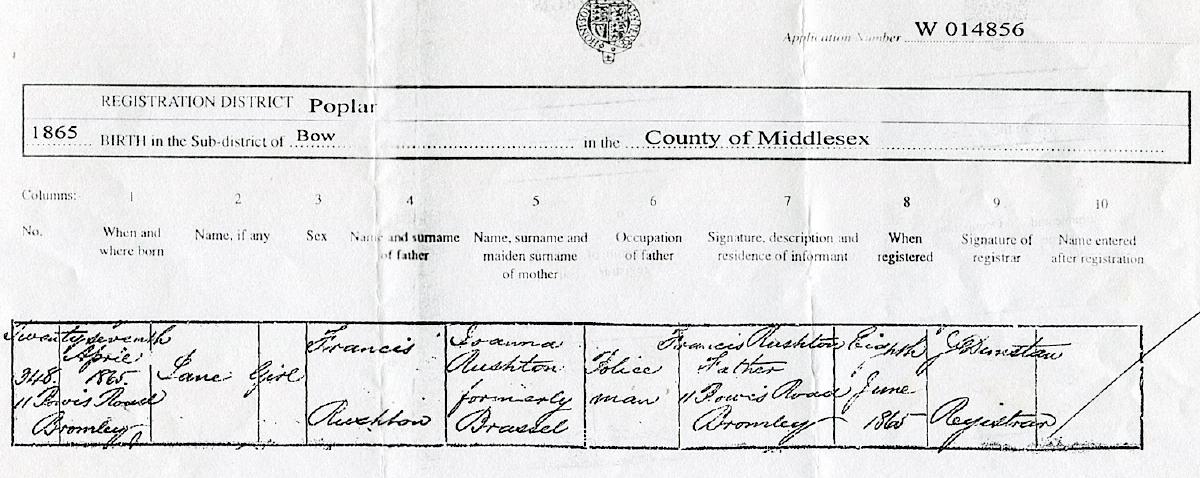 Application Number W 014856
REGISTRATION DISTRICT Poplar
1865 BIRTH in the Sub-district of Bow in the County of Middlesex
Columns: 1 2 3 4 5 6 7 8 9 10
No. When and where born Name, if any Sex Name and surname of father Name, surname and maiden surname of mother Occupation of father Signature, description and residence of informant When registered Signature of registrar Name entered after registration
Twenty seventh Francis Joanna Francis Rushton Eighth
April Rushton Police Father
348. 1865. Jane Girl formerly man 11 Powis Road June
11 Powis Road Rushton Brassel Bromley 1865 Registrar
Bromley